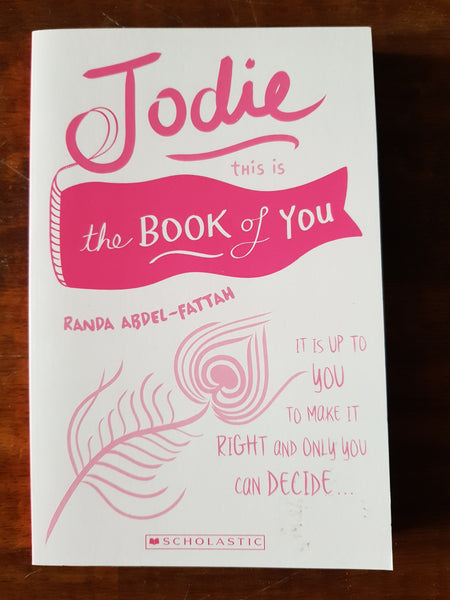 Jodie
THIS IS
the BOOK of YOU
RANDA ABDEL-FATTAH
IT IS UP TO
YOU
TO MAKE IT
RIGHT AND ONLY YOU
CAN DECIDE...
SCHOLASTIC